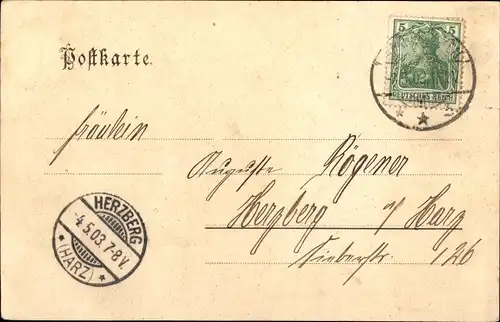 5 5
DEUTSCHES REICH
Postkarte.
Fräulein
Auguste Rögener
Herzberg a/ Harz
Sieberstr. 126
HERZBERG
4.5.03.7-8V.
* (HARZ) *